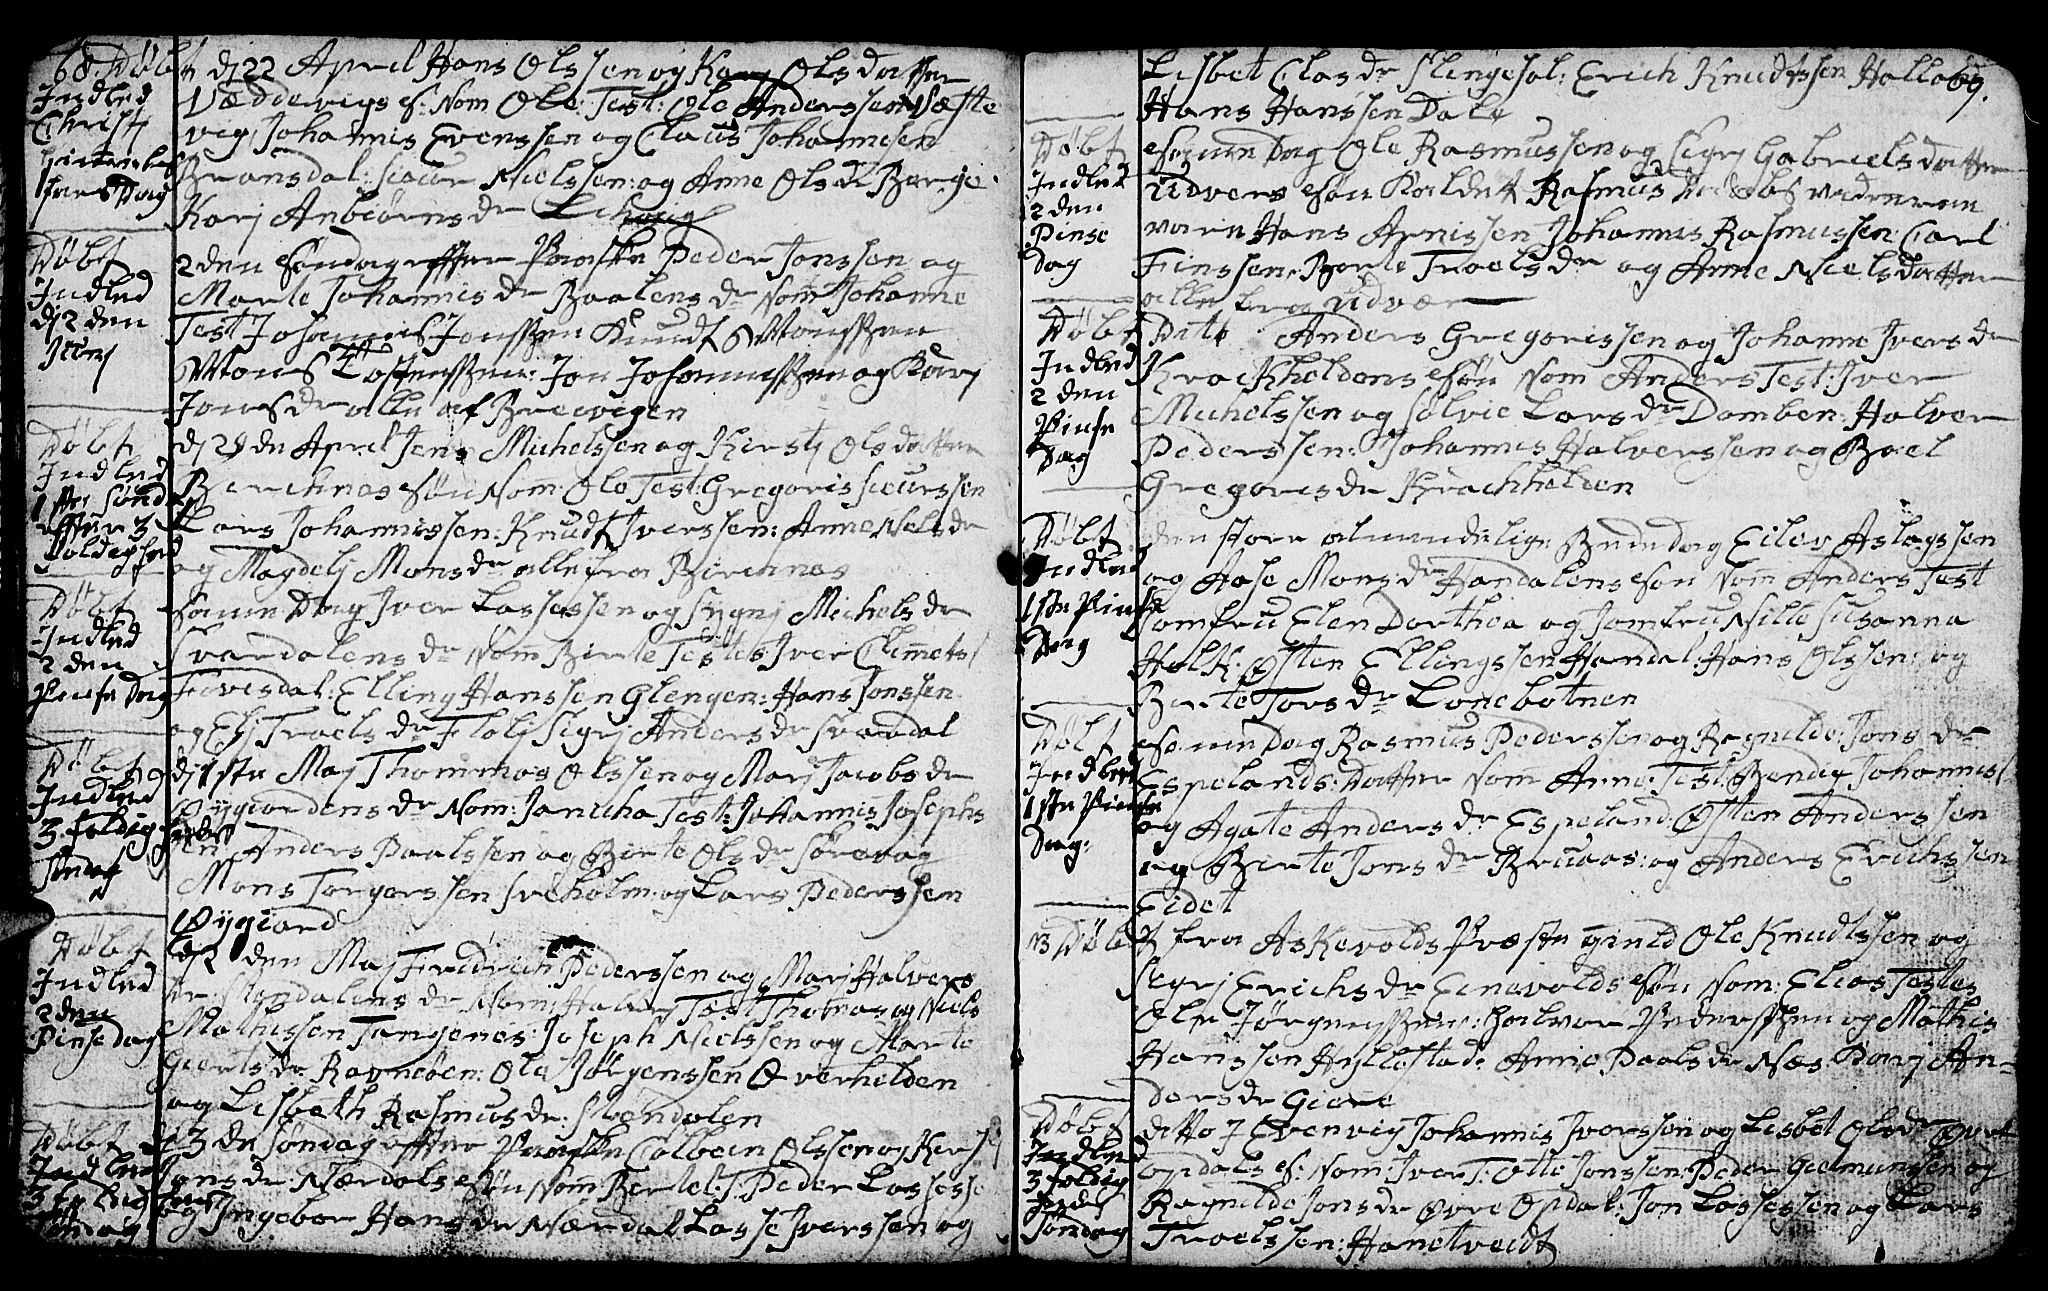 68. Døbt
Indled
Christi
himmel
farts Dag
dj 22 April Hans Olssen og Karj Olsdatter
Væddevigs s: Nom Ole: Test: Ole Anderssen Næste
vig, Johannis Evenssen og Claus Johannesen
Bransdal: Siour Nielssen: og Anne Olsdr Berge
Karj Anbiørnsdr
Døbt
Indled
dj 2 den
Maj
2den Søndag effter Paaske Peder Jonssen og
Marte Johannis dr Baalens dr Nom Johanne
Test Johannis Jonssen Knudt Monssen
Mons Tostenssen: Jon Johannissen og Karj
Jonsdr alle af Brecvegen
Døbt
Indled
1ste Sønd
effter 3
foldigh
dj 28de April Jens Michelssen og Kirstj Olsdatter
Birchnes søn Nom: Ole Test: Gregoris Siurssen
Lars Johannissen: Knudt Iverssen: Anne Nelsdr
og Magdelj Monsdr alle fra Birchnes
Døbt
Indled
2 den
Pinse Dag
Samme Dag Iver Lassessen og Sygnj Michelsdr
Svardalens dr Nom Birte Testes Iver Clemets
Tovesdal: Elling Hanssen Glengen: Hans Jonssen
og Elj Troels dr Flolj Sigrj Andersdr Svardal
Døbt
Indled
3 foldig
Søndag
dj 1ste Maj Thommas Olssen og Marj Jacobsdr
Øygiordens dr Nom: Janicha Test: Johannis Josephs
en Anders Paalssen og Birte Olsdr Sørevog
Mons Torgerssen Sveholm: og Lars Pederssen
Øygiord
Døbt
Indled
2den
Pinse Dag
dj 2 den Maj Fredrich Pederssen og Marj Halvers
dr: Stendalens dr Nom: Test Thomas og Niels
Mathissen Tangenes: Joseph Nielssen og Marte
Giertsdr Ravnøen: Ole Jørgenssen Overhelden
og Lisbeth Rasmusdr: Stendalen
Døbt
Indled
Søndag
3 de Søndag effter Paaske Colbein Olssen og Kers
Jonsdr: Nærdals søn Nom Bertel: T: Peder Lassess
og Ingebor Hansdr Nærdal Lasse Iverssen og
69.
Lisbet Clasdr Slingesol: Erich Knudtssen Hollo
Hans Hanssen Dale
Døbt
Indled
2 den
Pinse
Dag
Samme Dag Ole Rasmussen og Sigrj Gabrielsdatter
Udvers søn Kaldet Rasmus Daabs vidnerne
vare Hans Arnissen Johannis Rasmussen: Carl
Finssen, Borte Troelsdr og Anne Nielsdatter
alle fra Udvær
Døbt
Indled
2 den
Pinse
Dag
Dito Anders Gregorissen og Johanne Iversdr
Krackheldens søn Nom Anders Test: Iver
Michelssen og Sølvie Larsdr Domben: Halver
Pederssen: Johannis Halverssen og Boel
Gregorisdr Krackhelden
Døbt
Indled
1ste Pinse
Dag
den store almindelige Bededag Eilev Aslagssen
og Aase Monsdr Handalens søn Nom Anders Test
Jomfru Elen Dorthea og Jomfru Sille Susanna
Holk: Østen Ellingssen Handal: Hans Olssen: og
Birte Torsdr Lonebotnen
Døbt
Indled
1ste Pinse
Dag:
Samme Dag Rasmus Pederssen og Ragnilde Jonsdr
Espelands: Datter Nom Anne: Test: Bendix Johannis
og Agate Andersdr Espeland: Østen Anderssen
og Birte Jonsdr Bruaas: og Anders Erichssen
Eidet
Døbt
fra Askevolds Præste gield Ole Knudtssen og
Segrj Erichsdr Eenevolds søn Nom: Elias Testes
Ole Jørgenssen: Halvor Pederssen og Mathis
Hanssen Hyllestad: Anne Paalsdr Næs: Karj An-
dersdr Giere
Døbt
Indled
3 foldig
heds
Søndag
ditto J Evenvig Johannis Iverssen og Lisbet Olsdr Øvre
Opdals s: Nom: Iver T: Otte Jonssen: Peder Gudmunssen og
Ragnilde Jonsdr Øvre Opdal: Jon Lassessen og Lars
Troelssen: Hanetveidt